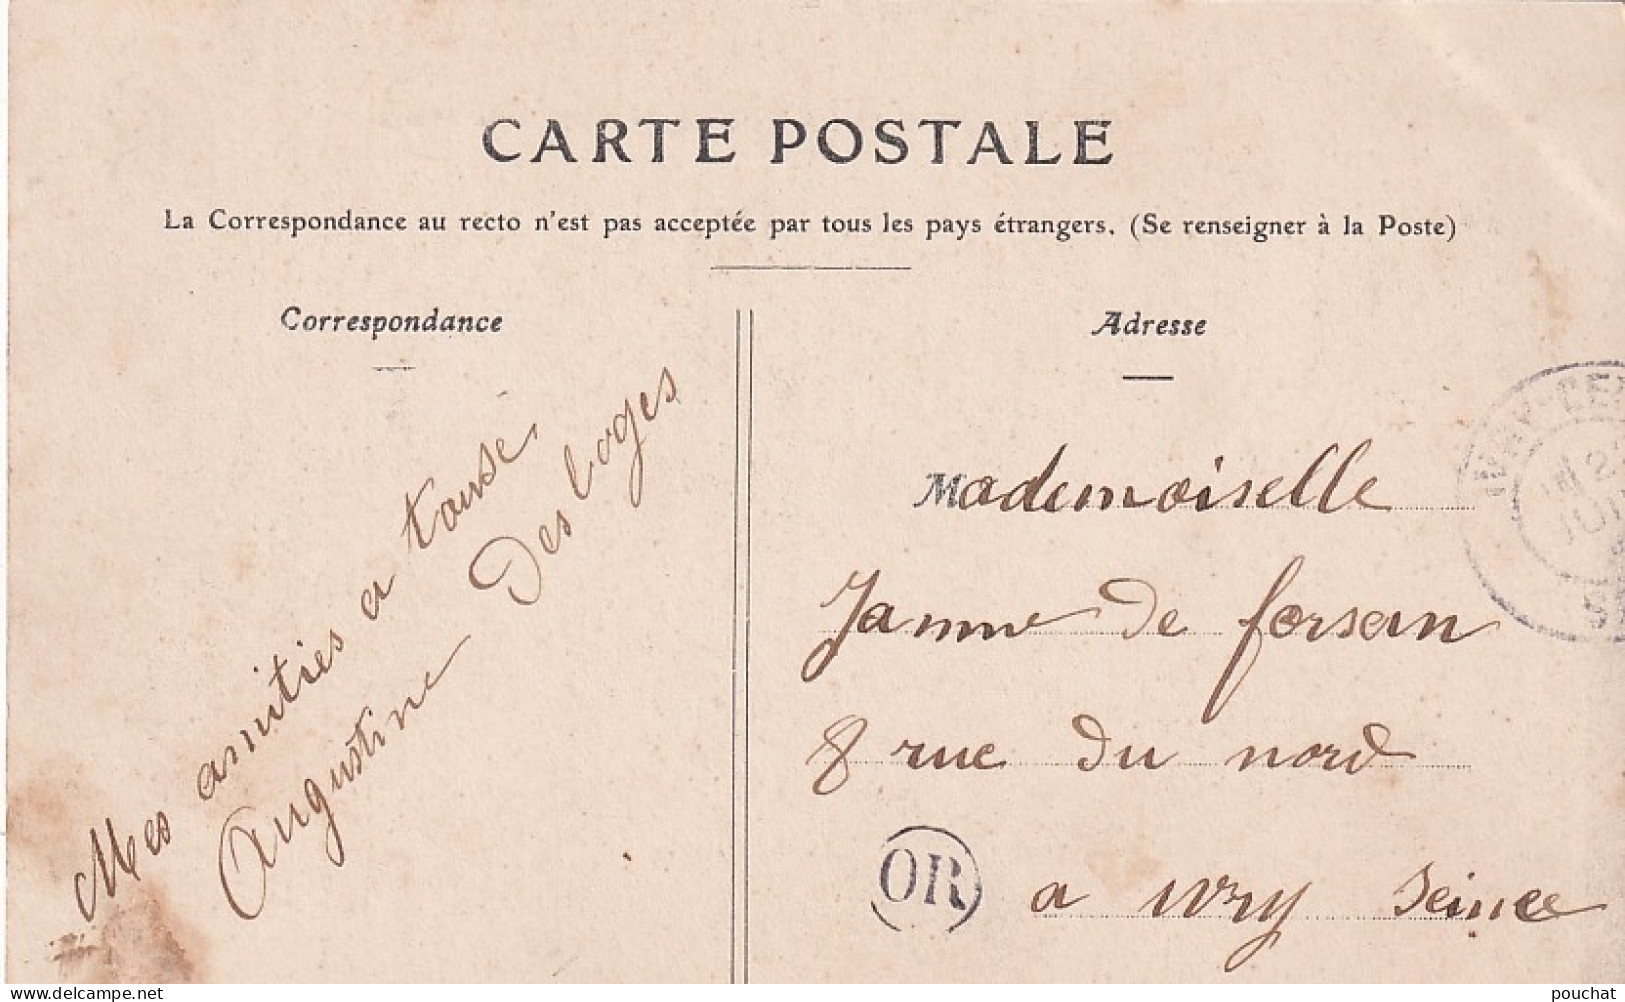 CARTE POSTALE
La Correspondance au recto n'est pas acceptée par tous les pays étrangers. (Se renseigner à la Poste)
Correspondance
Mes amities a touse
Augustine Des loges
Adresse
Mademoiselle
Janne de forsan
8 rue du nord
a ivry Seine
OR
delcampe.net
pouchat